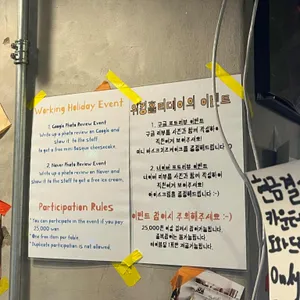 Working Holiday Event
1. Google Photo Review Event
Write up a photo review on Google and
show it to the staff
to get a free mini Basque cheesecake.
2. Naver Photo Review Event
Write up a photo review on Naver and
show it to the staff to get a free ice cream.
Participation Rules
*You can participate in the event if you pay
25,000 won
*One free item per table.
*Duplicate participation is not allowed.
워킹홀리데이의 이벤트
1. 구글 포토리뷰 이벤트
구글 리뷰를 사진과 함께 작성하여
직원에게 보여주세요!
2. 네이버 포토리뷰 이벤트
네이버 리뷰를 사진과 함께 작성하여
직원에게 보여주세요!
이벤트 참여시 주의해주세요 :-)
현금결
카운
와